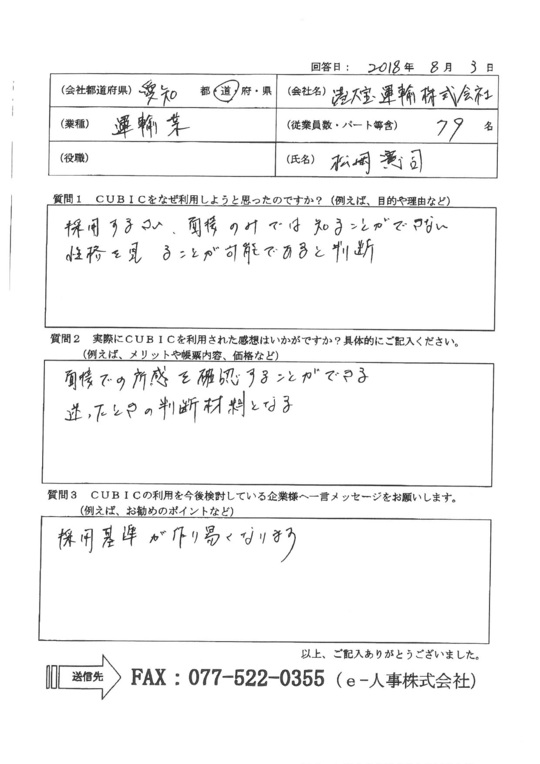 回答日: 2018年 8月 3日
(会社都道府県) 愛知 都・道・府・県
(会社名) 大宝運輸株式会社
(業種) 運輸業
(従業員数・パート等含) 79 名
(役職)
(氏名) 松岡 司
質問1 CUBICをなぜ利用しようと思ったのですか?(例えば、目的や理由など)
採用するさい、面接のみでは知ることができない
性格を見ることが可能であると判断
質問2 実際にCUBICを利用された感想はいかがですか?具体的にご記入ください。
(例えば、メリットや帳票内容、価格など)
面接での所感を確認することができる
迷ったときの判断材料となる
質問3 CUBICの利用を今後検討している企業様へ一言メッセージをお願いします。
(例えば、お勧めのポイントなど)
採用基準が作り易くなります
以上、ご記入ありがとうございました。
送信先 FAX:077-522-0355(e-人事株式会社)